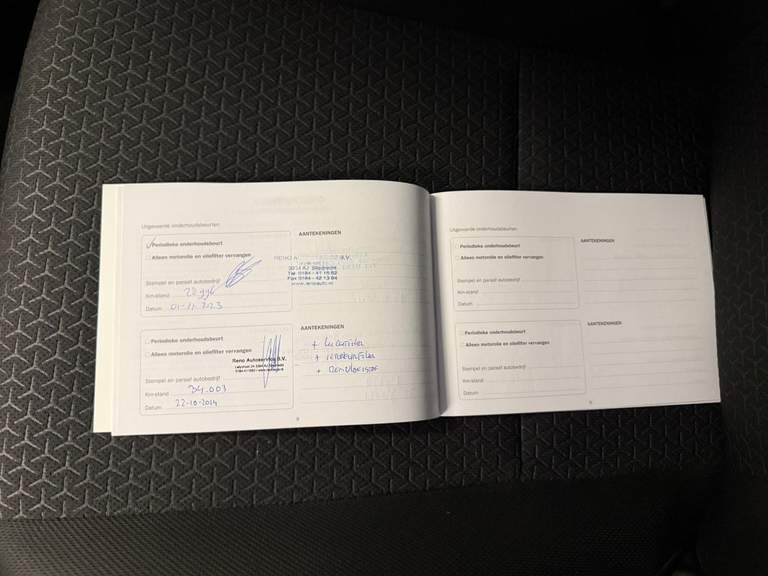 Uitgevoerde onderhoudsbeurten:
Periodieke onderhoudsbeurt
Alleen motorolie en oliefilter vervangen
Stempel en paraaf autobedrijf
Km-stand
Datum 01-11-2023
AANTEKENINGEN
B.V.
Tel. 0184 - 41 15 52
Fax 0184 - 42 13 84
Periodieke onderhoudsbeurt
Alleen motorolie en oliefilter vervangen
Reno Autoservice B.V.
Stempel en paraaf autobedrijf
Km-stand 34.003
Datum 22-10-2024
AANTEKENINGEN
+ Luchtfilter
+ Interieurfilter
+ Remvloeistof
Uitgevoerde onderhoudsbeurten:
Periodieke onderhoudsbeurt
Alleen motorolie en oliefilter vervangen
Stempel en paraaf autobedrijf
Km-stand
Datum
AANTEKENINGEN
Periodieke onderhoudsbeurt
Alleen motorolie en oliefilter vervangen
Stempel en paraaf autobedrijf
Km-stand
Datum
AANTEKENINGEN